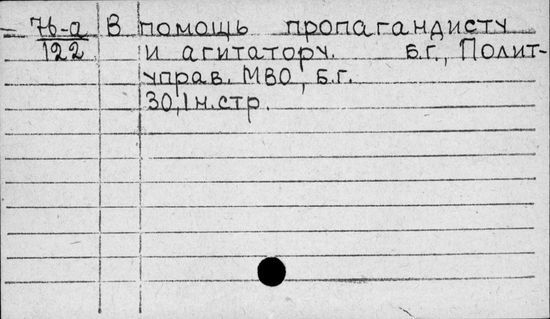 76-а В помощь пропагандисту
122 и агитатору. б.г., Полит-
управ. МВО, б.г.
30,1 н.стр.